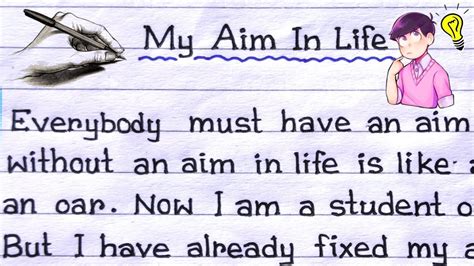 My Aim In Life
Everybody must have an aim
without an aim in life is like
an oar. Now I am a student
But I have already fixed my